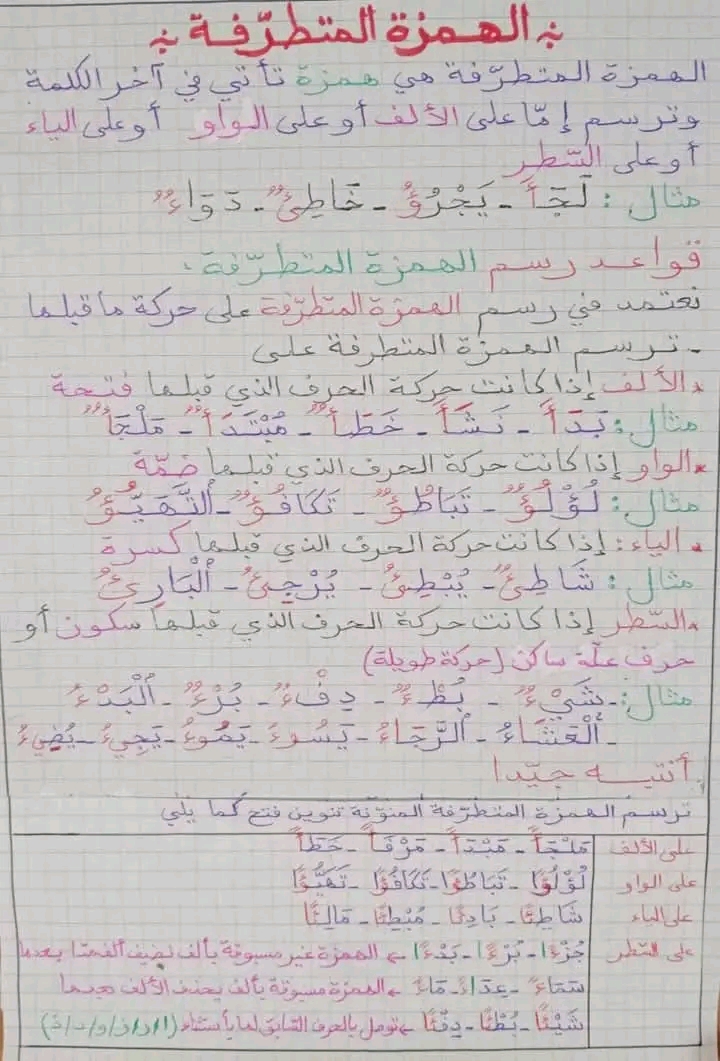 الهمزة المتطرّفة
الهمزة المتطرّفة هي همزة تأتي في آخر الكلمة
وترسم إمّا على الألف أو على الواو أو على الياء
أو على السّطر
مثال : لَجَأَ - يَجْرُؤُ - خَاطِئٌ - دَوَاءٌ
قواعد رسم الهمزة المتطرّفة .
نعتمد في رسم الهمزة المتطرّفة على حركة ما قبلها
- ترسم الهمزة المتطرفة على
* الألف إذا كانت حركة الحرف الذي قبلها فتحة
مثال : بَدَأَ - نَشَأَ - خَطَأٌ - مُبْتَدَأٌ - مَلْجَأٌ
* الواو إذا كانت حركة الحرف الذي قبلها ضمّة
مثال : لُؤْلُؤٌ - تَبَاطُؤٌ - تَكَافُؤٌ - ألتَّهَيُّؤُ
* الياء : إذا كانت حركة الحرف الذي قبلها كسرة
مثال : شَاطِئٌ - يُبْطِئُ - يُرْجِئُ - أَلْبَارِئُ
* السّطر إذا كانت حركة الحرف الذي قبلها سكون أو
حرف علّة ساكن (حركة طويلة)
مثال : - شَيْءٌ - بُطْءٌ - دِفْءٌ - بُرْءٌ - أَلْبَدْءُ
- أَلْعَشَاءُ - ألرَّجَاءُ - يَسُوءُ - يَمُوءُ - يَجِيءُ - يُضِيءُ
أنتبه جيّدا
ترسم الهمزة المتطرّفة المنوّنة تنوين فتح كما يلي
على الألف مَلْجَأً - مَبْدَأً - مَرْفَأً - خَطَأً
على الواو لُؤْلُؤًا - تَبَاطُؤًا - تَكَافُؤًا - تَهَيُّؤًا
على الياء شَاطِئًا - بَادِئًا - مُبْطِئًا - مَالِئًا
على السّطر جُزْءًا - بُرْءًا - بَدْءًا ← الهمزة غير مسبوقة بألف نضيف ألفا بعدها
سَمَاءً - عِدَاءً - مَاءً ← الهمزة مسبوقة بألف يحذف الألف بعدها
شَيْئًا - بُطْئًا - دِفْئًا ← توصل بالحرف السّابق لها بأستثناء